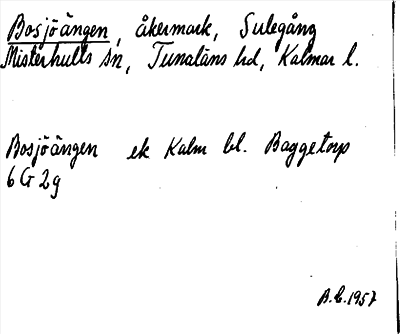 Bosjöängen, åkermark, Sulegång
Misterhults sn, Tunaläns hd, Kalmar l.
Bosjöängen ek Kalm bl. Baggetorp
6 G 2 g
A.L. 1957